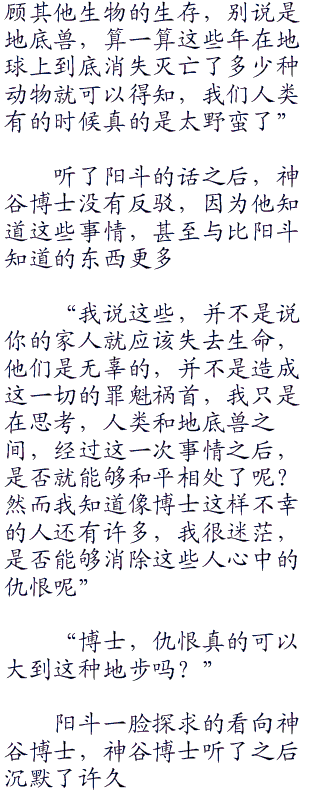 顾其他生物的生存，别说是
地底兽，算一算这些年在地
球上到底消失灭亡了多少种
动物就可以得知，我们人类
有的时候真的是太野蛮了”
听了阳斗的话之后，神
谷博士没有反驳，因为他知
道这些事情，甚至与比阳斗
知道的东西更多
“我说这些，并不是说
你的家人就应该失去生命，
他们是无辜的，并不是造成
这一切的罪魁祸首，我只是
在思考，人类和地底兽之
间，经过这一次事情之后，
是否就能够和平相处了呢？
然而我知道像博士这样不幸
的人还有许多，我很迷茫，
是否能够消除这些人心中的
仇恨呢”
“博士，仇恨真的可以
大到这种地步吗？”
阳斗一脸探求的看向神
谷博士，神谷博士听了之后
沉默了许久